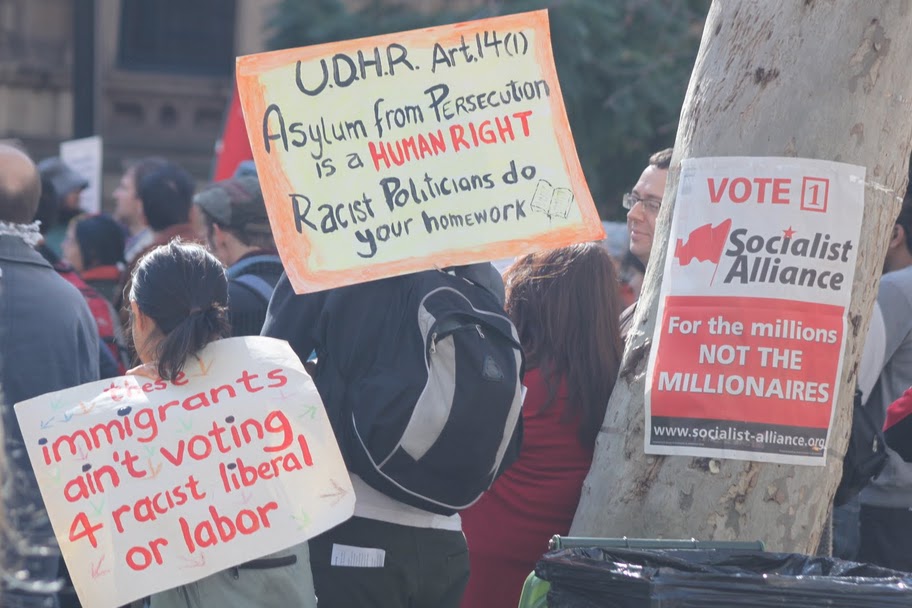 U.D.H.R. Art.14(1)
Asylum from Persecution
is a HUMAN RIGHT
Racist Politicians do
your homework
these
immigrants
ain't voting
4 racist liberal
or labor
VOTE 1
Socialist
Alliance
For the millions
NOT THE
MILLIONAIRES
www.socialist-alliance.org